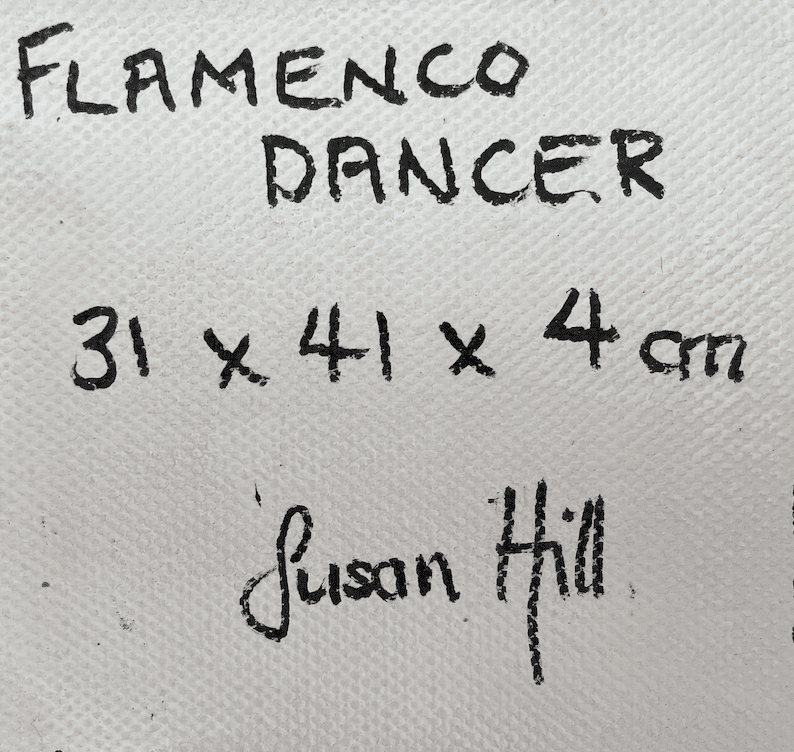 FLAMENCO
DANCER
31 x 41 x 4 cm
Susan Hill